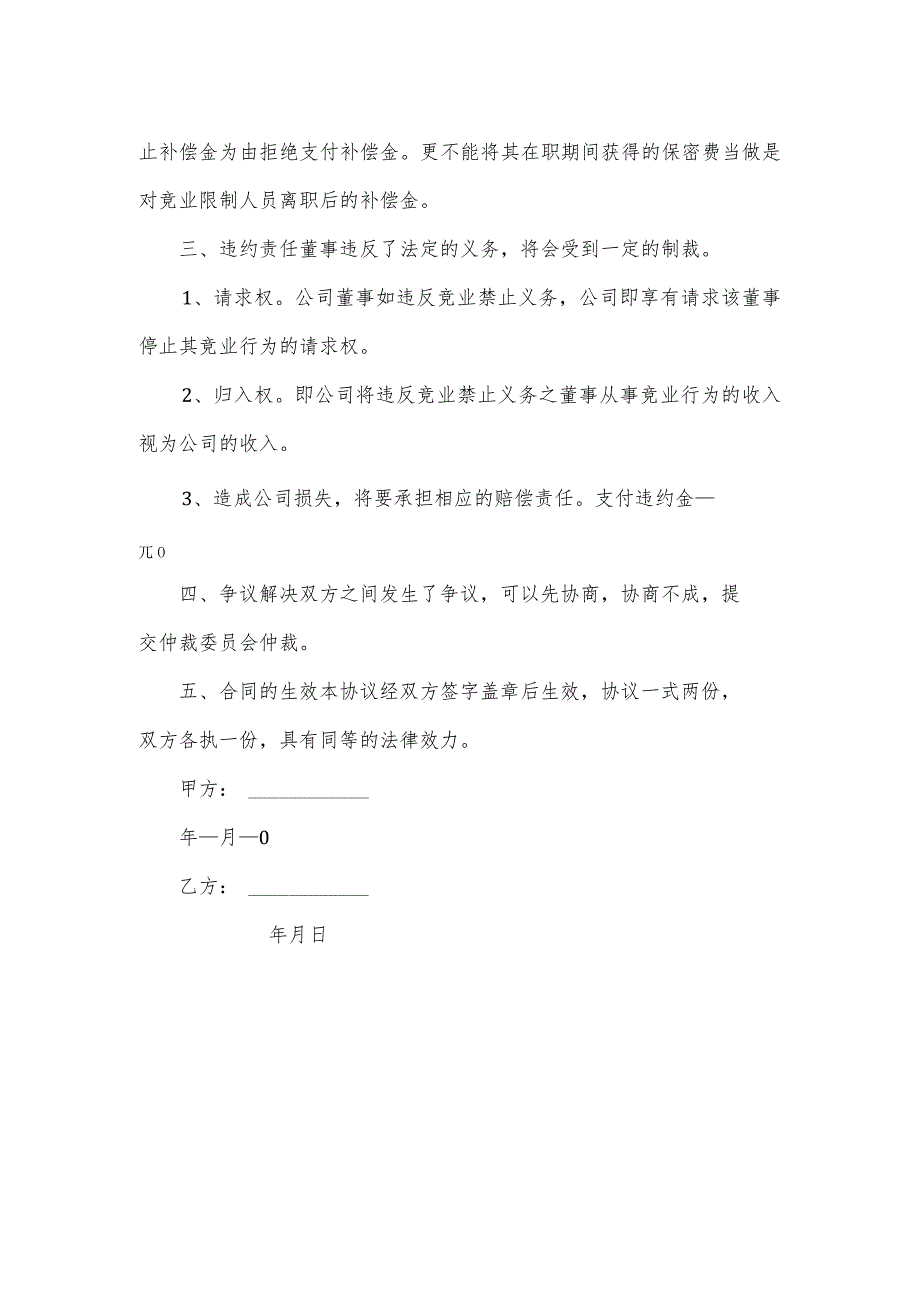 止补偿金为由拒绝支付补偿金。更不能将其在职期间获得的保密费当做是
对竞业限制人员离职后的补偿金。
三、违约责任董事违反了法定的义务，将会受到一定的制裁。
1、请求权。公司董事如违反竞业禁止义务，公司即享有请求该董事
停止其竞业行为的请求权。
2、归入权。即公司将违反竞业禁止义务之董事从事竞业行为的收入
视为公司的收入。
3、造成公司损失，将要承担相应的赔偿责任。支付违约金—
兀0
四、争议解决双方之间发生了争议，可以先协商，协商不成，提
交仲裁委员会仲裁。
五、合同的生效本协议经双方签字盖章后生效，协议一式两份，
双方各执一份，具有同等的法律效力。
甲方： ____________
年—月—0
乙方： ____________
年月日